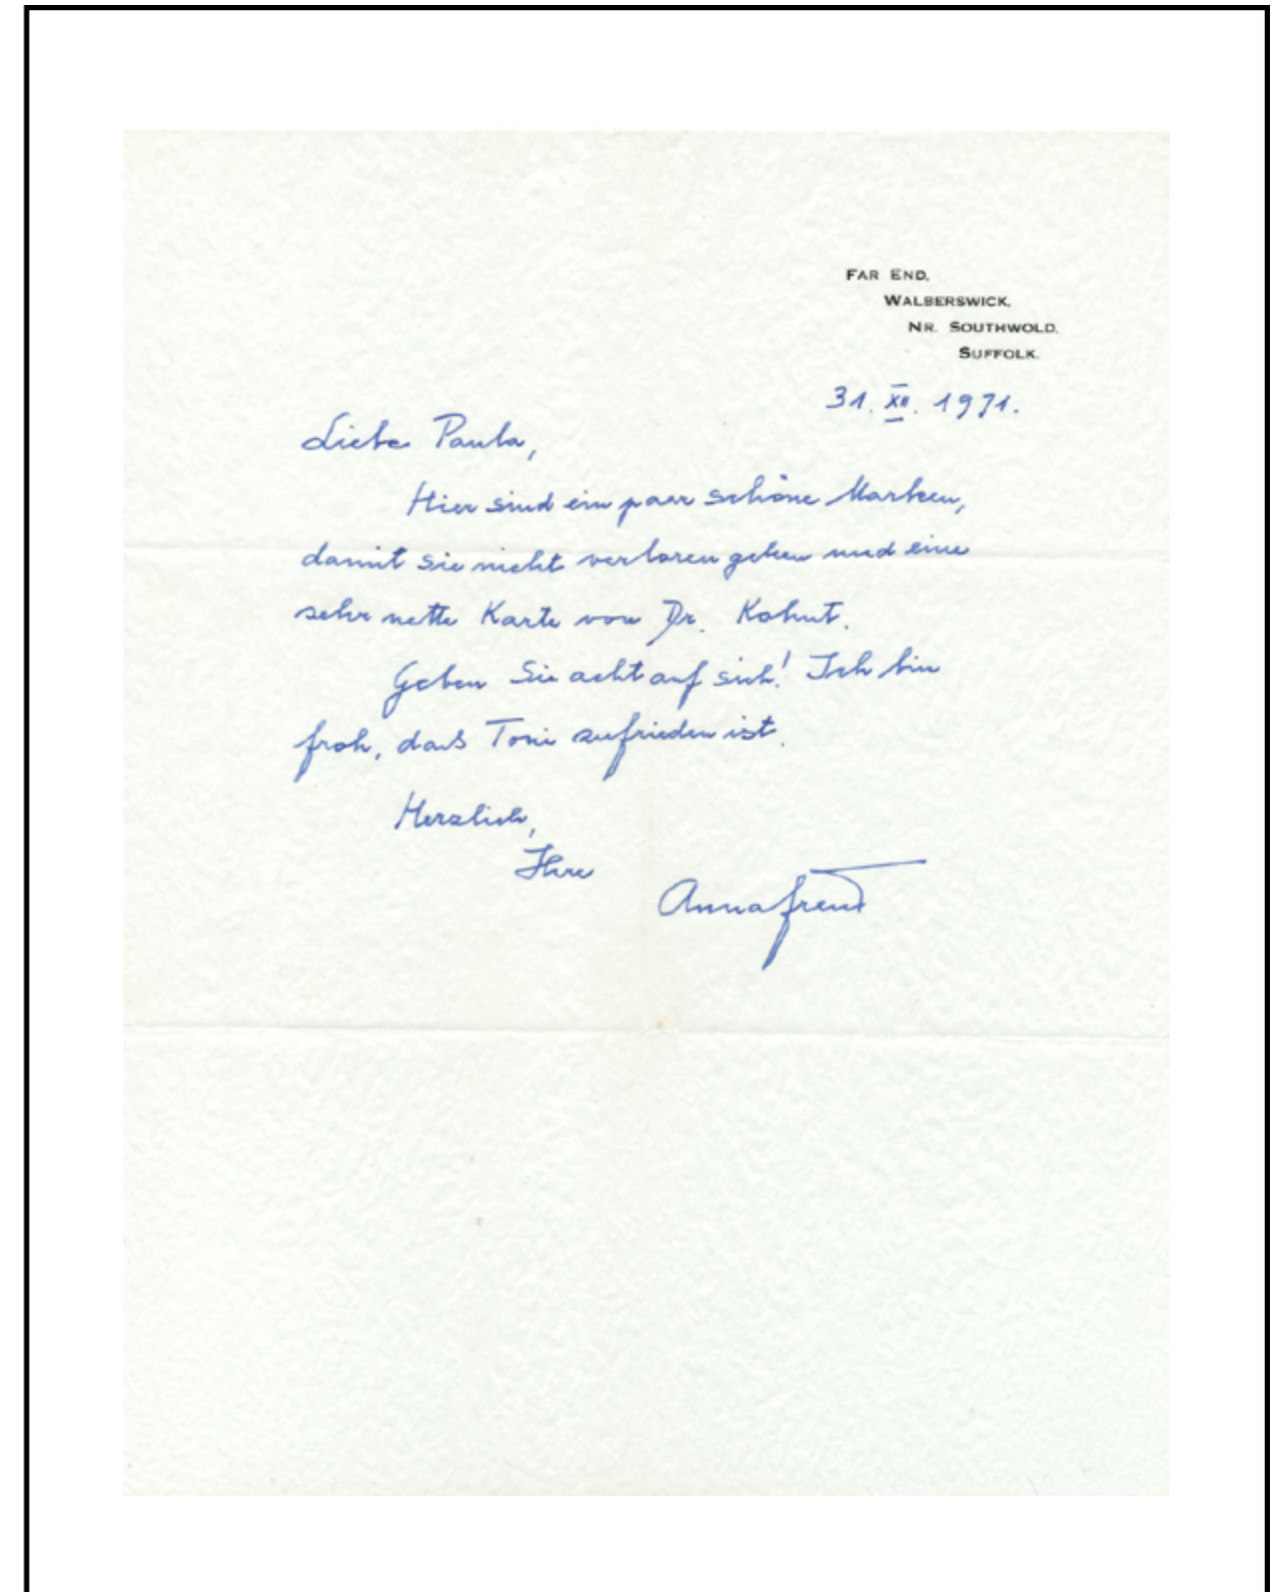 FAR END,
WALBERSWICK,
NR. SOUTHWOLD,
SUFFOLK.
31. XII. 1971.
Liebe Paula,
Hier sind ein paar schöne Marken,
damit sie nicht verloren gehen und eine
sehr nette Karte von Dr. Kohut.
Geben Sie acht auf sich! Ich bin
froh, dass Toni zufrieden ist.
Herzlich,
Ihre
Anna Freud